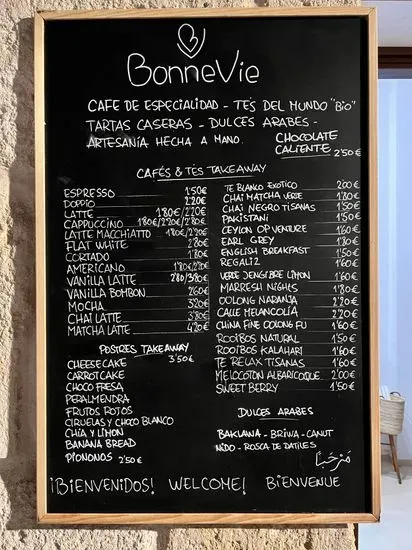 BonneVie
CAFE DE ESPECIALIDAD - TE'S DEL MUNDO "Bio"
TARTAS CASERAS - DULCES ARABES -
ARTESANÍA HECHA A MANO.
CHOCOLATE CALIENTE 2'50€
CAFÉS & TÉS TAKEAWAY
ESPRESSO 1'50€
DOPPIO 2'20€
LATTE 1'80€/2'20€
CAPPUCCINO 1'80€/2'20€/2'80€
LATTE MACCHIATTO 1'80€/2'20€
FLAT WHITE 2'80€
CORTADO 1'80€
AMERICANO 1'80€/2'20€
VANILLA LATTE 2'80/3'80€
VANILLA BOMBON 2'60€
MOCHA 3'20€
CHAI LATTE 3'80€
MATCHA LATTE 4'20€
TE BLANCO EXOTICO 2'00€
CHAI MATCHA VERDE 1'80€
CHAI NEGRO TISANAS 1'50€
PAKISTANI 1'50€
CEYLON OP VENTURE 1'60€
EARL GREY 1'80€
ENGLISH BREAKFAST 1'50€
REGALIZ 1'60€
VERDE JENGIBRE LIMON 1'60€
MARRESH NIGHTS 1'80€
OOLONG NARANJA 2'20€
CALLE MELANCOLÍA 2'20€
CHINA FINE OOLONG FU 1'60€
ROOIBOS NATURAL 1'50€
ROOIBOS KALAHARI 1'60€
TE RELAX TISANAS 1'60€
MELOCOTON ALBARICOQUE 2'00€
SWEET BERRY 1'50€
POSTRES TAKEAWAY
3'50€
CHEESECAKE
CARROTCAKE
CHOCO FRESA
PERALMENDRA
FRUTOS ROJOS
CIRUELAS Y CHOCO BLANCO
CHIA Y LIMON
BANANA BREAD
PIONONOS 2'50€
DULCES ARABES
BAKLAWA - BRIWA - CANUT
NIDO - ROSCA DE DATILES
مرحباً
¡BIENVENIDOS! WELCOME! BIENVENUE